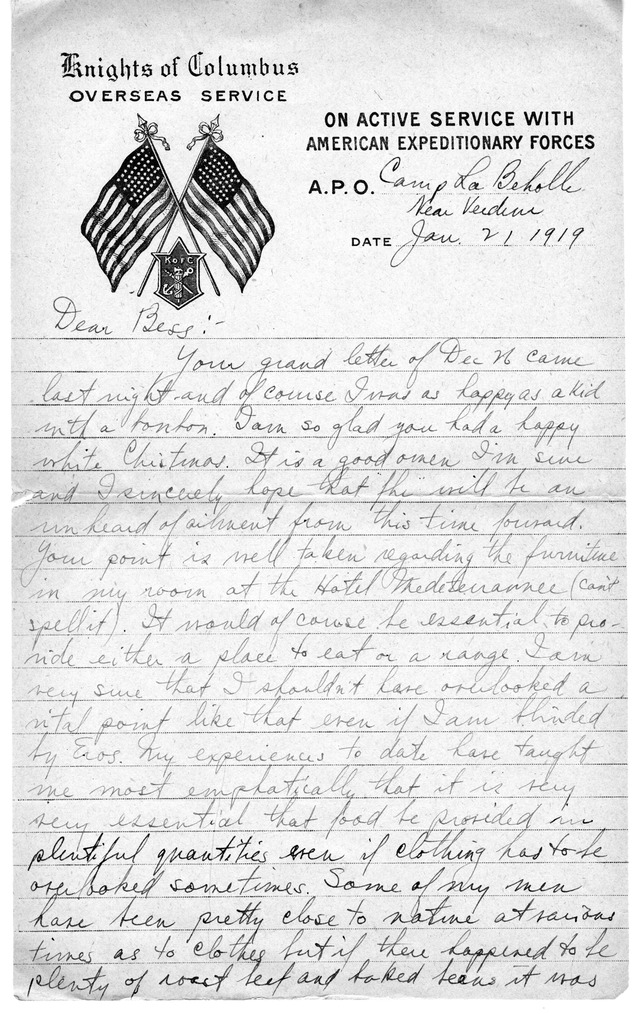 Knights of Columbus
OVERSEAS SERVICE
ON ACTIVE SERVICE WITH
AMERICAN EXPEDITIONARY FORCES
A.P.O. Camp La Beholle
Near Verdun
DATE Jan. 21 1919
K of C
Dear Bess:-
Your grand letter of Dec 26 came
last night and of course I was as happy as a kid
with a bonbon. I am so glad you had a happy
white Christmas. It is a good omen I'm sure
and I sincerely hope that "flu" will be an
unheard of ailment from this time forward.
Your point is well taken regarding the furniture
in my room at the Hotel (cant
spell it). It would of course be essential to pro-
vide either a place to eat or a range. I am
very sure that I shouldn't have overlooked a
vital point like that even if I am blinded
by Eros. My experiences to date have taught
me most emphatically that it is very
very essential that food be provided in
plentiful quantities even if clothing has to be
overlooked sometimes. Some of my men
have been pretty close to nature at various
times as to clothes but if there happened to be
plenty of roast beef and baked beans it was